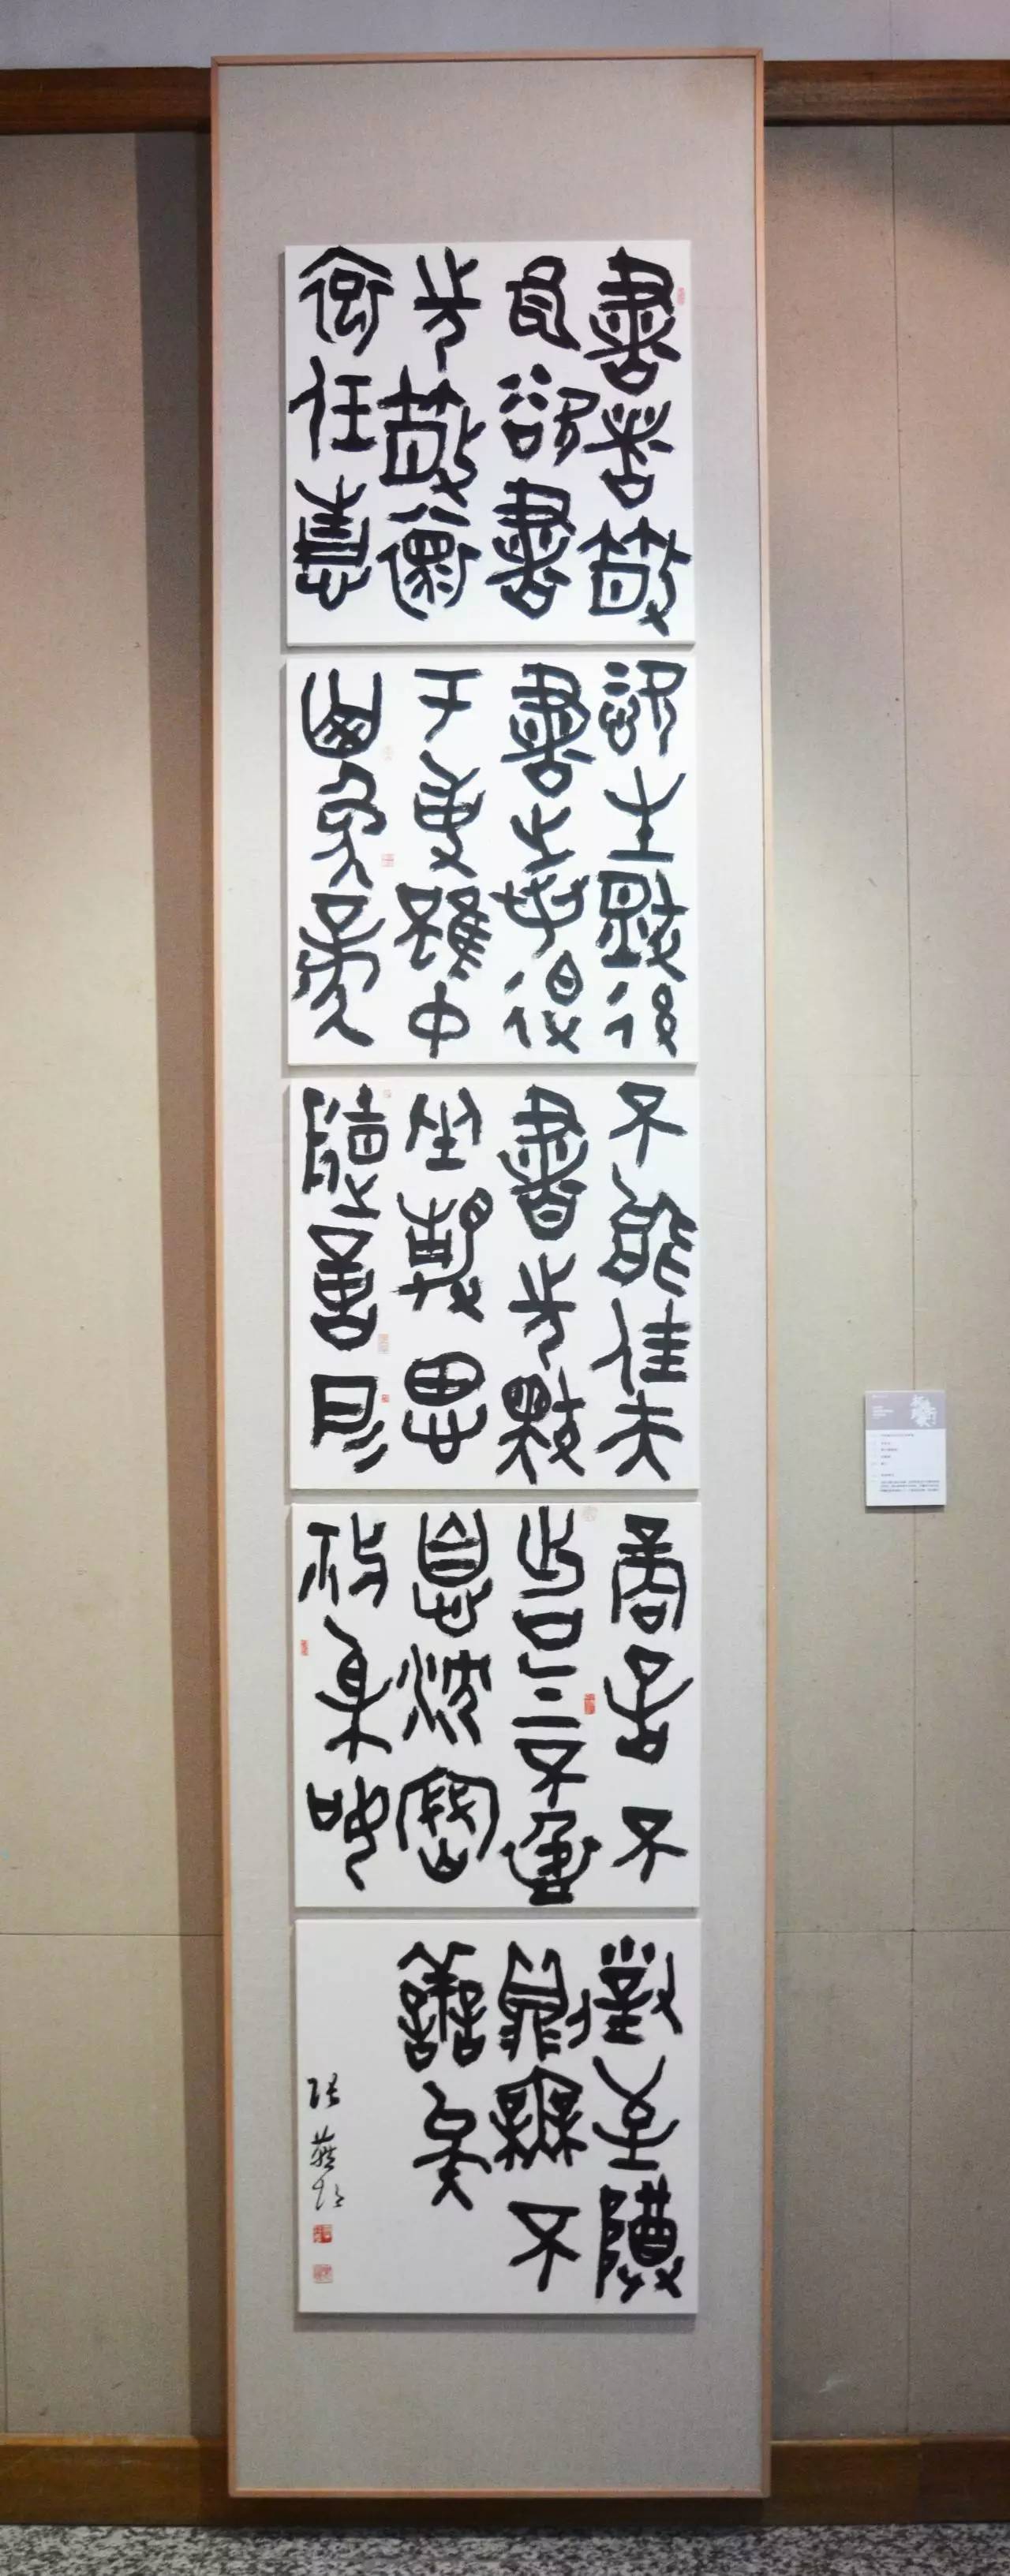 書者散
也欲書
先散懷
抱任情
恣性然後
書之若迫
于事雖中
山兔毫
不能佳夫
書先默
坐靜思
隨意所
適言不
出口气不盈
息沈密
神采如
對至尊
則無不
善矣